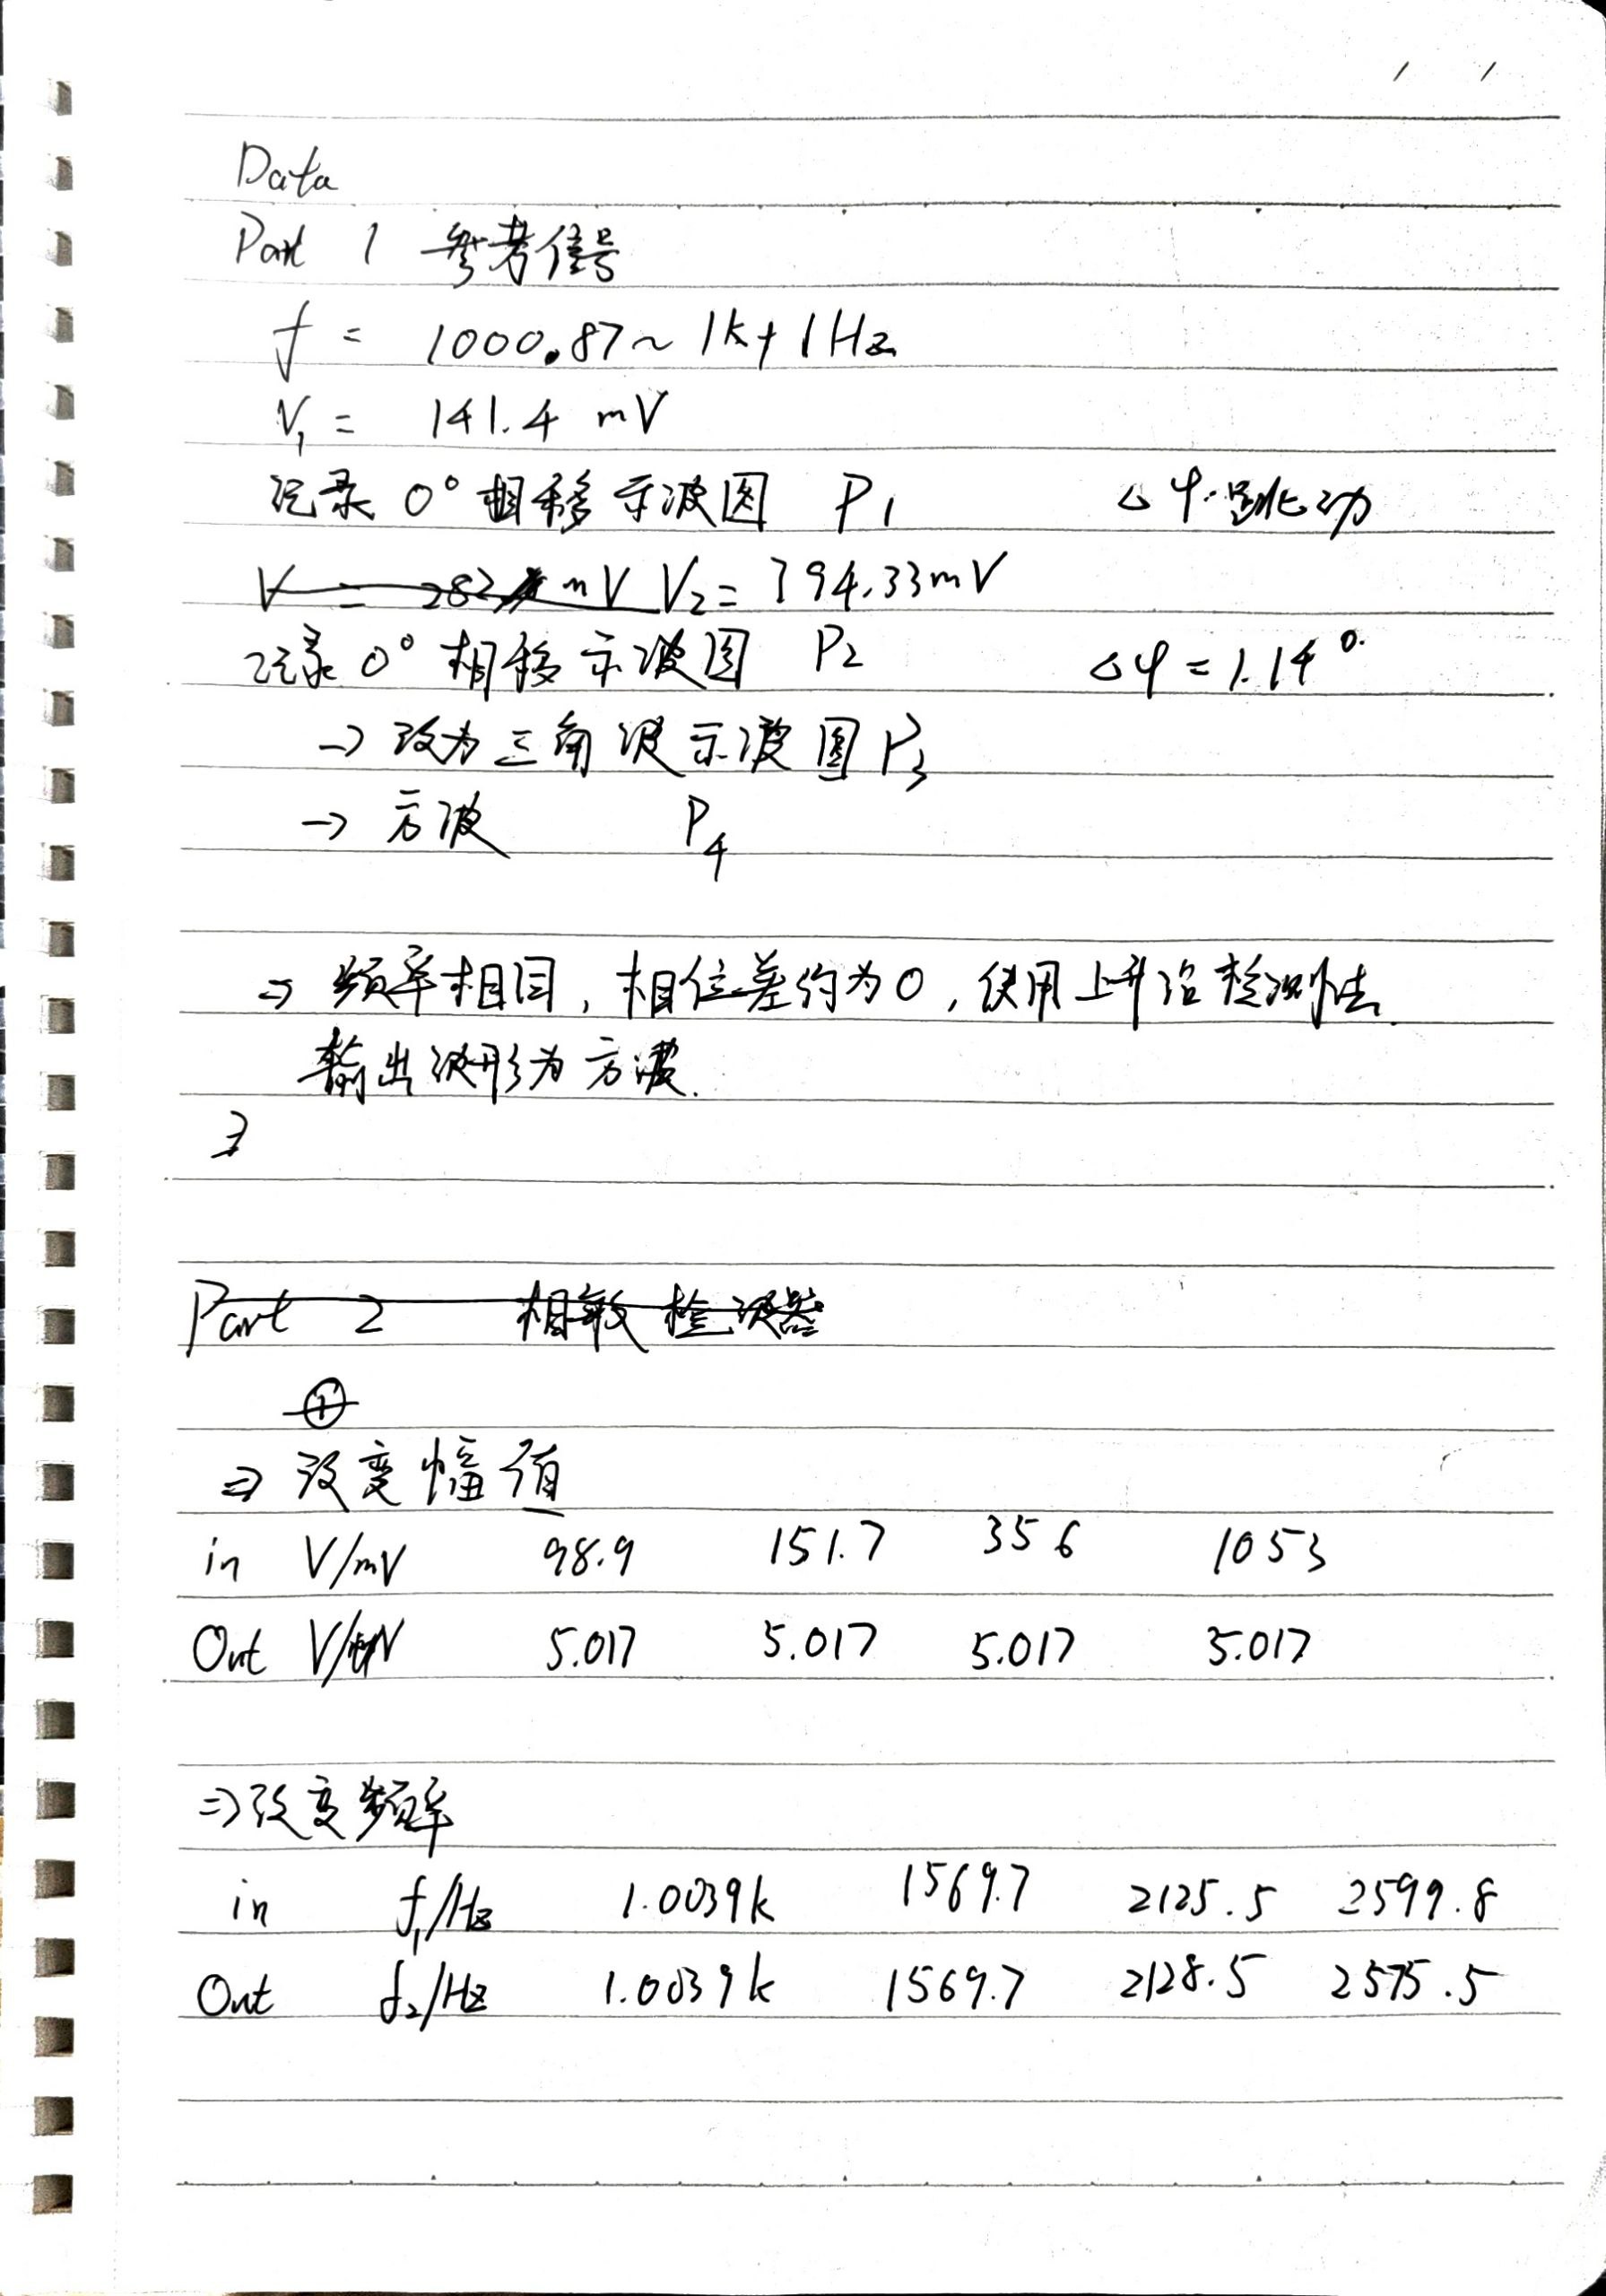 / /
Data
Part 1 参考信号
f = 1000.87 ~ 1k+1Hz
V₁ = 141.4 mV
记录 0° 相移示波图 P1 △φ 跳动
V = 282 mV V₂ = 394.33mV
记录 0° 相移示波图 P2 △φ = 1.14°
→ 改为三角波示波图 P3
→ 方波 P4
⇒ 频率相同, 相位差约为0, 使用上升沿检测法.
输出波形为方波.
⇒
Part 2 相敏检波器
①
⇒ 改变幅值
in V/mV 98.9 151.7 356 1053
Out V/V 5.017 5.017 5.017 5.017
⇒ 改变频率
in f₁/Hz 1.0039k 1569.7 2125.5 2599.8
Out f₂/Hz 1.0039k 1569.7 2128.5 2575.5